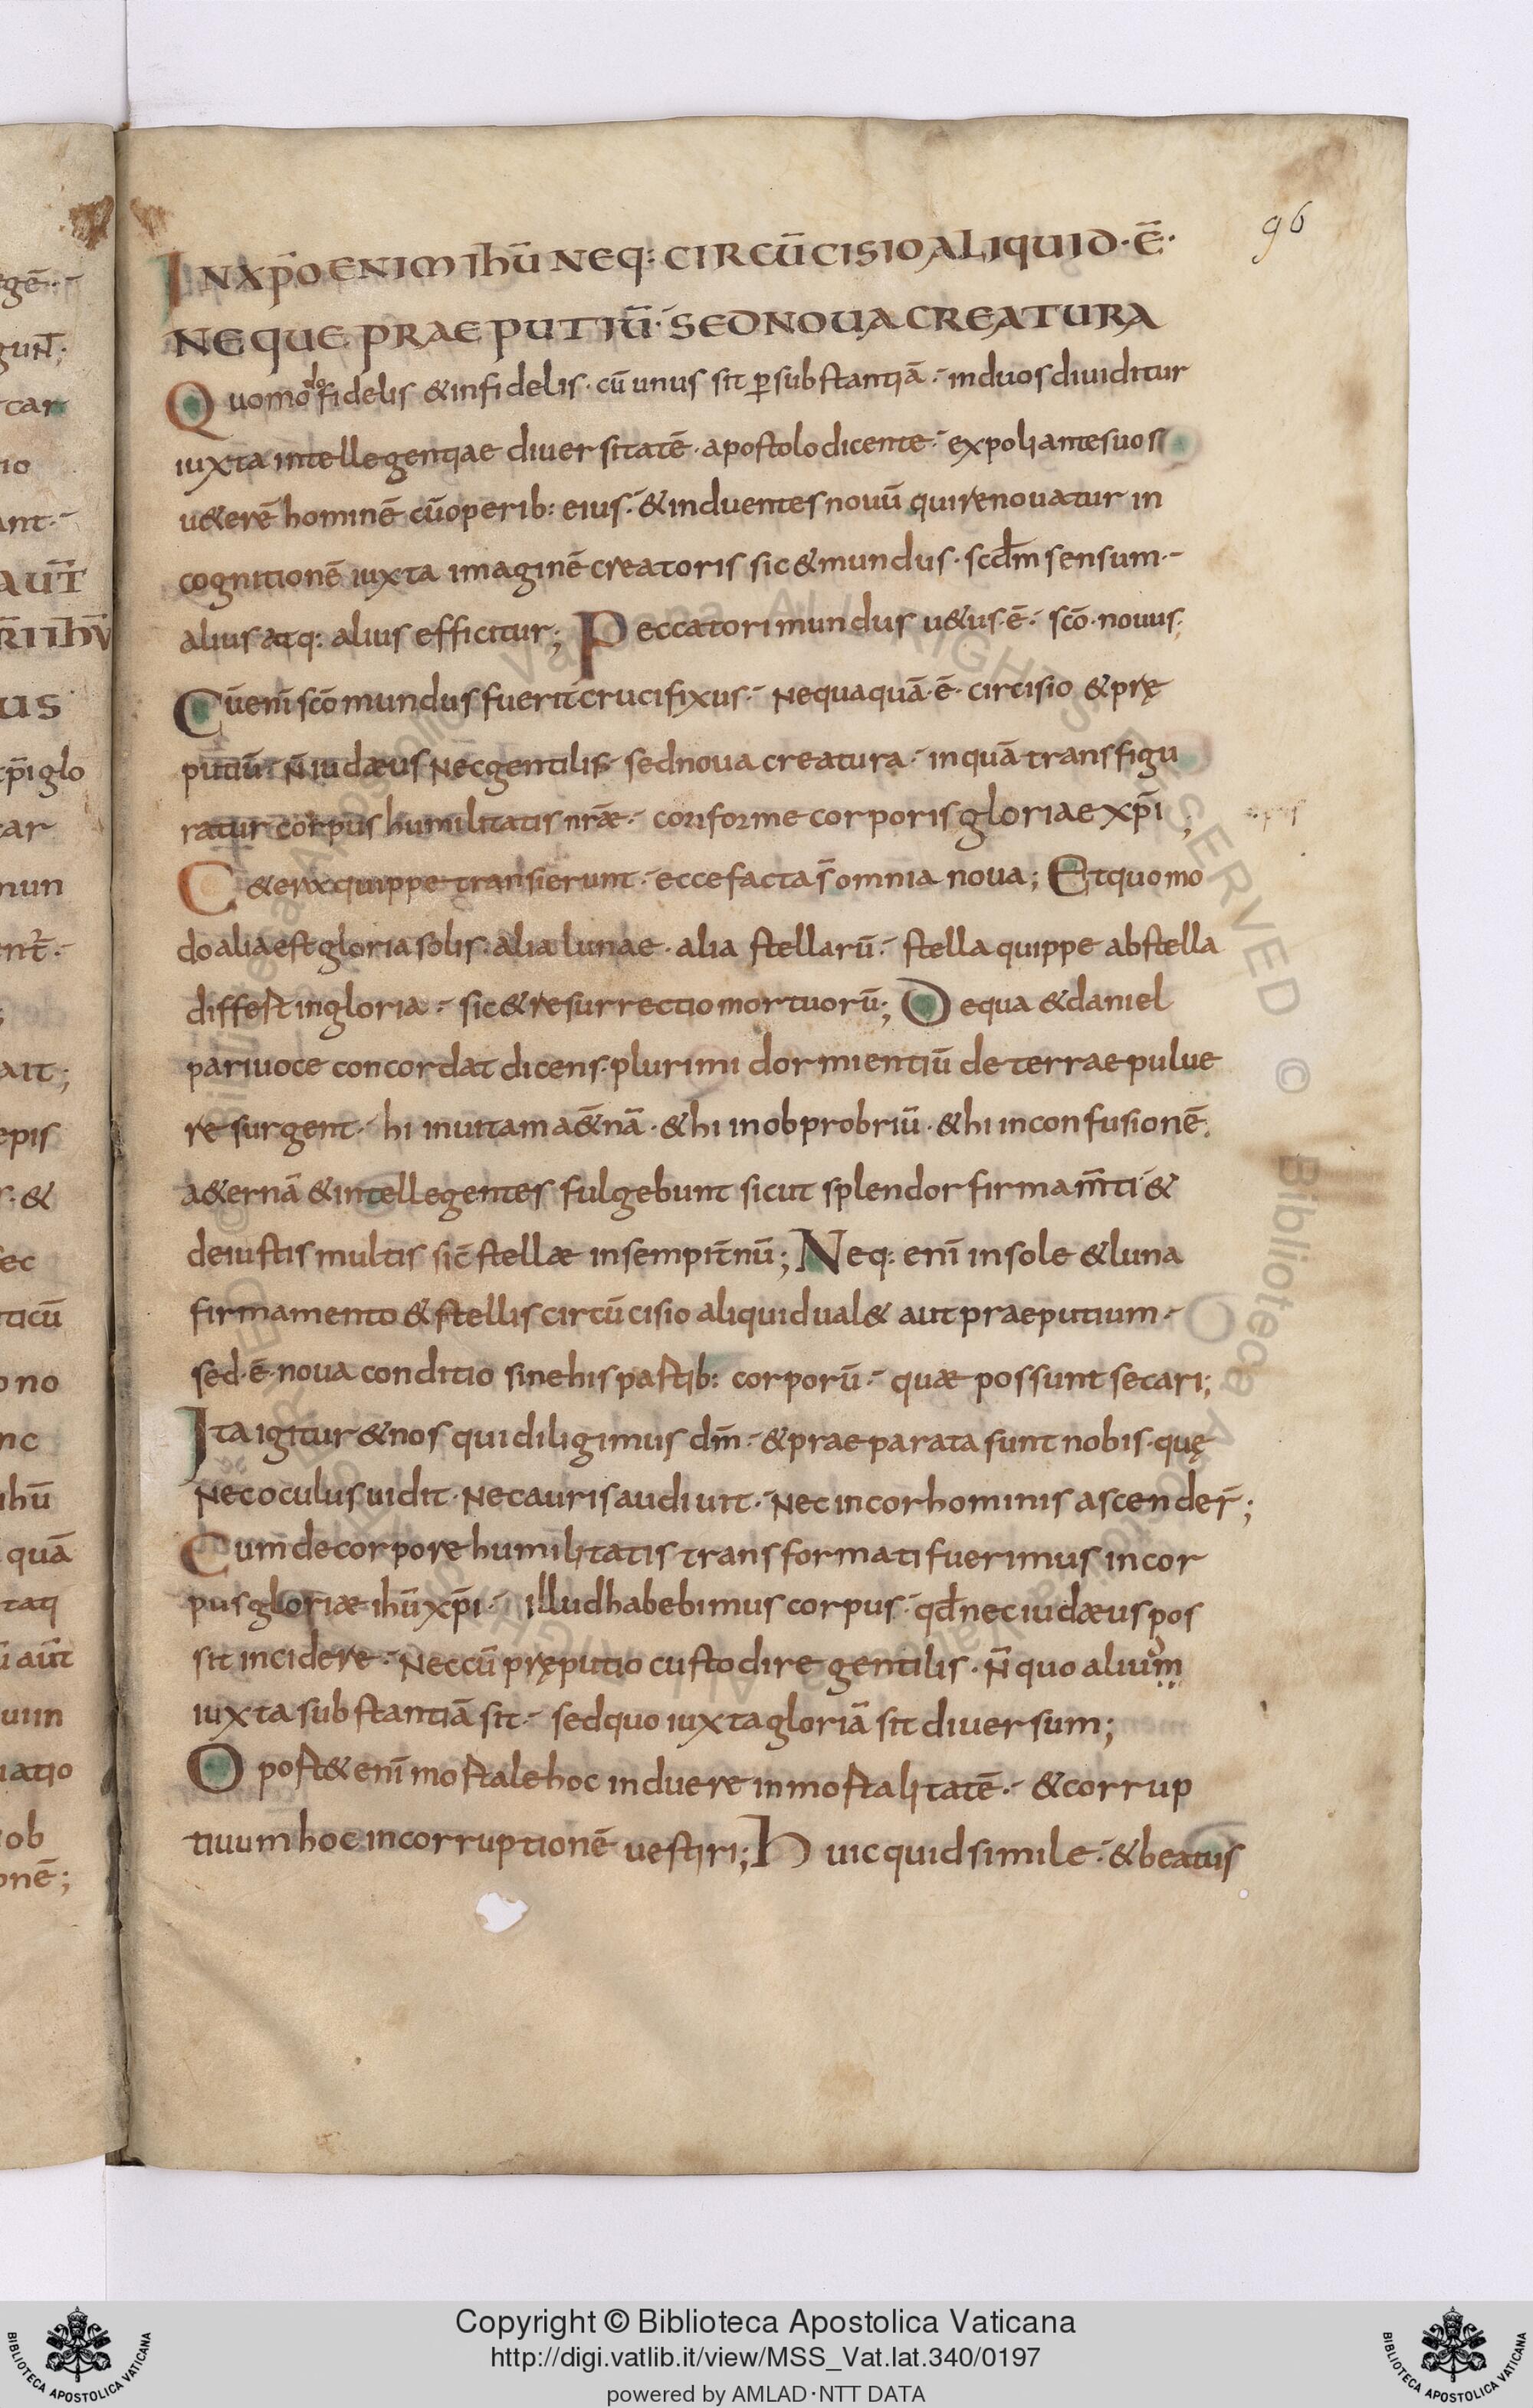 96
IN XP̄O ENIM IHŪ NEQ: CIRCŪCISIO ALIQUID·Ē·
NEQUE PRAEPUTIŪ· SED NOUA CREATURA
Quomodo fidelis & infidelis· cū unus sit p̱ substantiā· in duos diuiditur
iuxta intellegentiae diuersitatē· apostolo dicente· expoliantes uos
u&erē hominē cū operib: eius· & induentes nouū qui renouatur in
cognitionē iuxta imaginē creatoris sic & mundus· scd̄m sensum·
alius atq: alius efficitur; Peccatori mundus u&us·ē· scō·nouus;
Cū enī scō mundus fuerit crucifixus· Nequaquā·ē· circisio & prę
putiū· N̄ iudæus Nec gentilis· sed noua creatura· in quā transfigu
ratur corpus humilitatis nrāe· conforme corporis gloriae xp̄i ;
C&era quippe transierunt· ecce facta s̄ omnia noua; Et quomo
do alia est gloria solis· alia lunae· alia stellarū· stella quippe ab stella
differt in gloria· sic & resurrectio mortuorū; De qua & daniel
pari uoce concordat dicens· plurimi dormientiū de terrae pulue
re surgent· hi in uitam a&̄nā· & hi in obprobriū· & hi in confusionē
a&ernā & intellegentes fulgebunt sicut splendor firmam̄ti &
de iustis multis sic̄ stellæ in sempit̄nū; Neq: enī in sole & luna
firmamento & stellis circūcisio aliquid ual& aut praeputium·
sed·ē·noua conditio sine his partib: corporū· quæ possunt secari;
Ita igitur & nos qui diligimus dm̄· & praeparata sunt nobis· quę
Nec oculus uidit· Nec auris audiuit· Nec in cor hominis ascender̄;
Cum de corpore humilitatis transformati fuerimus in cor
pus gloriæ ihū xp̄i· illud habebimus corpus· qd̄ nec iudæus pos
sit incidere· Nec cū pręputio custodire gentilis· N̄ quo alium
iuxta substantiā sit· sed quo iuxta gloriā sit diuersum;
Oport& enī mortale hoc induere inmortalitatē· & corrup
tiuum hoc incorruptionē uestiri; Huic quid simile· & beatus
Copyright © Biblioteca Apostolica Vaticana
http://digi.vatlib.it/view/MSS_Vat.lat.340/0197
powered by AMLAD·NTT DATA
BIBLIOTECA APOSTOLICA VATICANA
BIBLIOTECA APOSTOLICA VATICANA